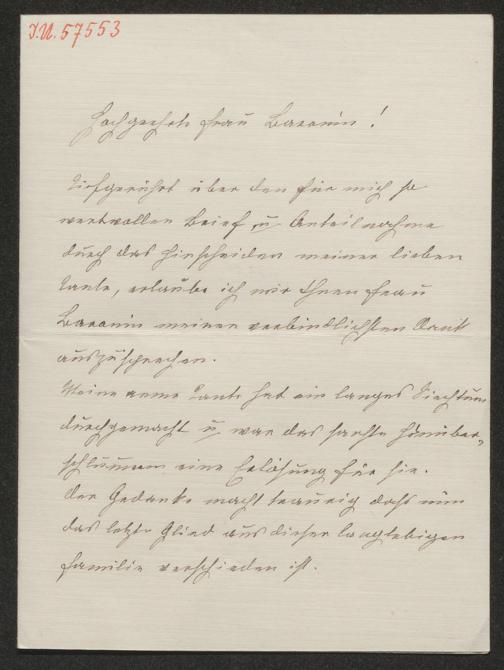 I.N. 57553
Hochgeehrte Frau Baronin!
Tiefgerührt über den für mich so
wertvollen Brief u Anteilnahme
durch das Hinscheiden meiner lieben
Tante, erlaube ich mir Ihnen Frau
Baronin meinen verbindlichsten Dank
auszusprechen.
Meine arme Tante hat ein langes Siechtum
durchgemacht u war das sanfte Hinüber-
schlummern eine Erlösung für sie.
Der Gedanke macht traurig daß nun
das letzte Glied aus dieser langlebigen
Familie verschieden ist.